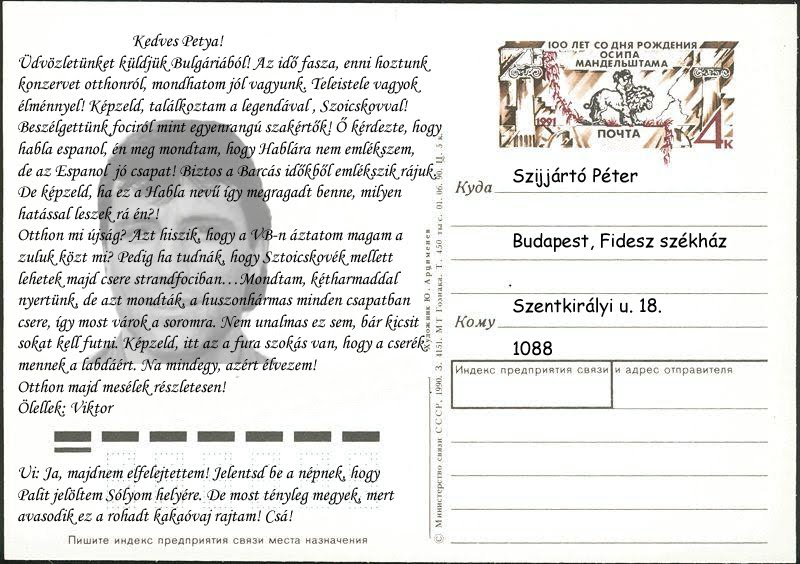 Kedves Petya!
Üdvözletünket küldjük Bulgáriából! Az idő fasza, enni hoztunk
konzervet otthonról, mondhatom jól vagyunk. Teleistele vagyok
élménnyel! Képzeld, találkoztam a legendával , Szoicskovval!
Beszélgettünk fociról mint egyenrangú szakértők! Ő kérdezte, hogy
habla espanol, én meg mondtam, hogy Hablára nem emlékszem,
de az Espanol jó csapat! Biztos a Barcás időkből emlékszik rájuk.
De képzeld, ha ez a Habla nevű így megragadt benne, milyen
hatással leszek rá én?!
Otthon mi újság? Azt hiszik, hogy a VB-n áztatom magam a
zuluk közt mi? Pedig ha tudnák, hogy Sztoicskovék mellett
lehetek majd csere strandfociban…Mondtam, kétharmaddal
nyertünk, de azt mondták, a huszonhármas minden csapatban
csere, így most várok a soromra. Nem unalmas ez sem, bár kicsit
sokat kell futni. Képzeld, itt az a fura szokás van, hogy a cserék
mennek a labdáért. Na mindegy, azért élvezem!
Otthon majd mesélek részletesen!
Ölellek: Viktor
Ui: Ja, majdnem elfelejtettem! Jelentsd be a népnek, hogy
Palit jelöltem Sólyom helyére. De most tényleg megyek, mert
avasodik ez a rohadt kakaóvaj rajtam! Csá!
Пишите индекс предприятия связи места назначения
© Министерство связи СССР. 1990. З. 4151. МТ Гознака. Т. 450 тыс. 01. 06. 90. Ц. 5 к.
Художник Ю. Арцименев
100 ЛЕТ СО ДНЯ РОЖДЕНИЯ
ОСИПА
МАНДЕЛЬШТАМА
1991
ПОЧТА
4к
Куда
Szijjártó Péter
Budapest, Fidesz székház
.
Кому
Szentkirályi u. 18.
1088
Индекс предприятия связи и адрес отправителя